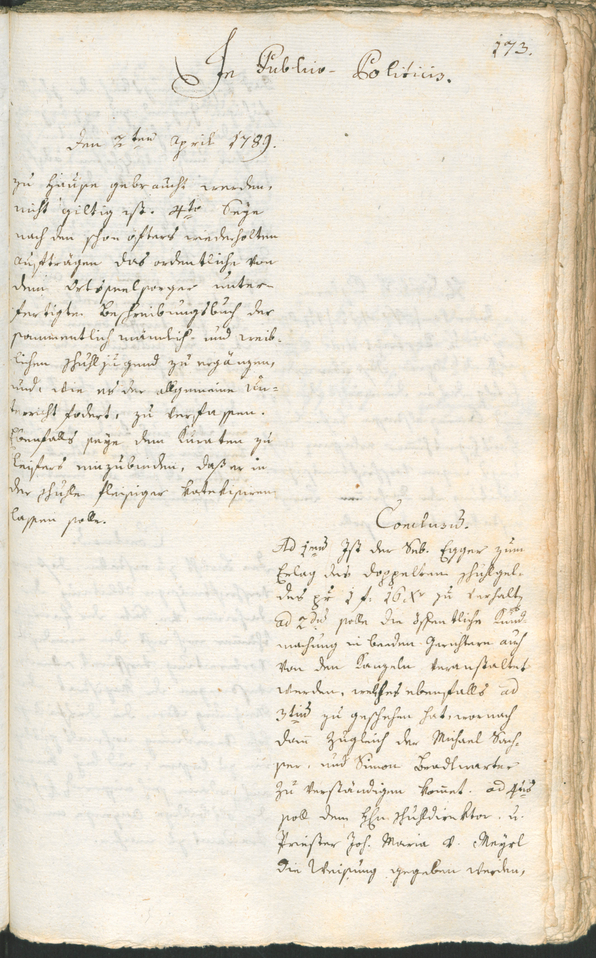 173.
In Publico-Politicis.
Den 2ten April 1789.
zu Hause gebraucht werden,
nicht giltig ist. 4to Seye
nach den schon öfters wiederholten
Aufträgen das ordentliche von
dem Ortsseelsorger unter-
fertigte Beschreibungsbuch der
sammentlich mänlich- und weib-
lichen Schuhljugend zu ergänzen,
und, wie es der allgemeine Un-
terricht fodert, zu verfassen.
Ebenfalls seye dem Kuraten zu
Leifers einzubinden, daß er in
der Schuhle fleisiger katekisiren
lassen solle.
Conclusum.
Ad 1mum Ist der Seb. Egger zum
Erlag des doppelten Schuhlgel-
des pr 1 f. 16 xr zu verhalten
ad 2dum solle die öffentliche Kund-
machung in beeden Gerichtern auch
von den Kanzeln veranstaltet
werden, welches ebenfalls ad
3tium zu geschehen hat, wornach
dann zugleich der Michael
und Simon Bradlwarter
zu verständigen kommt. ad 4tum
soll dem Hhn Schuhldirektor, u.
Priester Joh. Maria v. Mayrl
die Weisung gegeben werden,